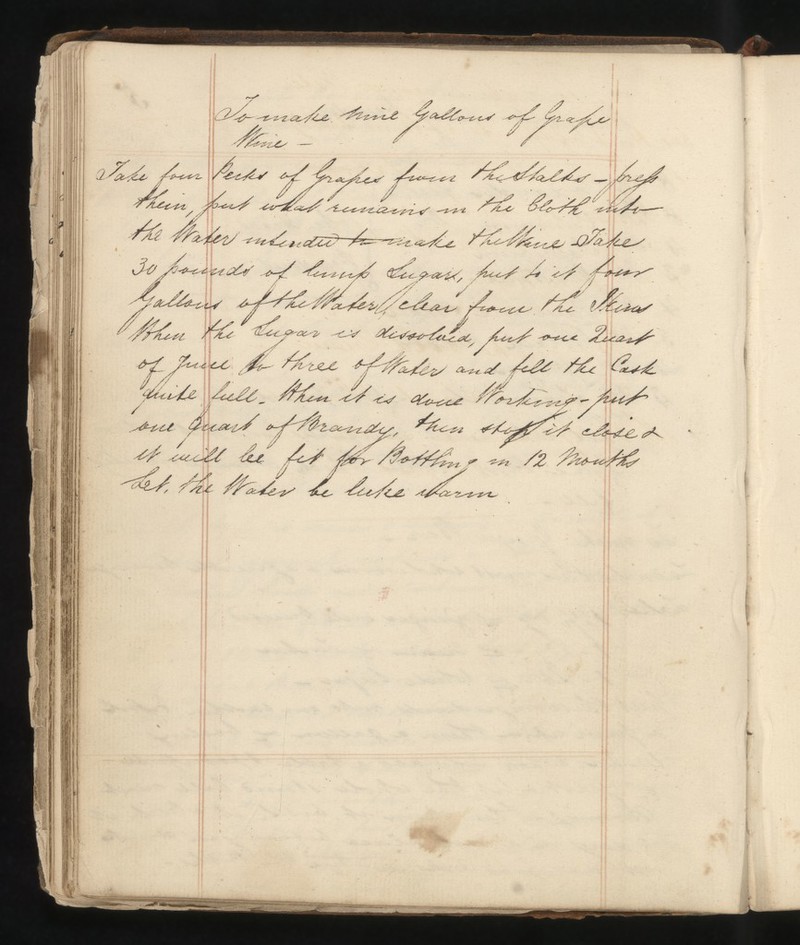 To make Nine Gallons of Grape
Wine -
Take four Pecks of Grapes from the Stalks - press
them, put what remains in the Cloth into
the Water intended to make the Wine. Take
30 pounds of lump Sugar, put to it four
Gallons of the Water, clear from the Skins
When the Sugar is dissolved, put one Quart
of Juice to three of Water and fill the Cask
quite full. When it is done Working - put
one Quart of Brandy, then stop it close &
it will be fit for Bottling in 12 Months
Let, the Water be luke warm